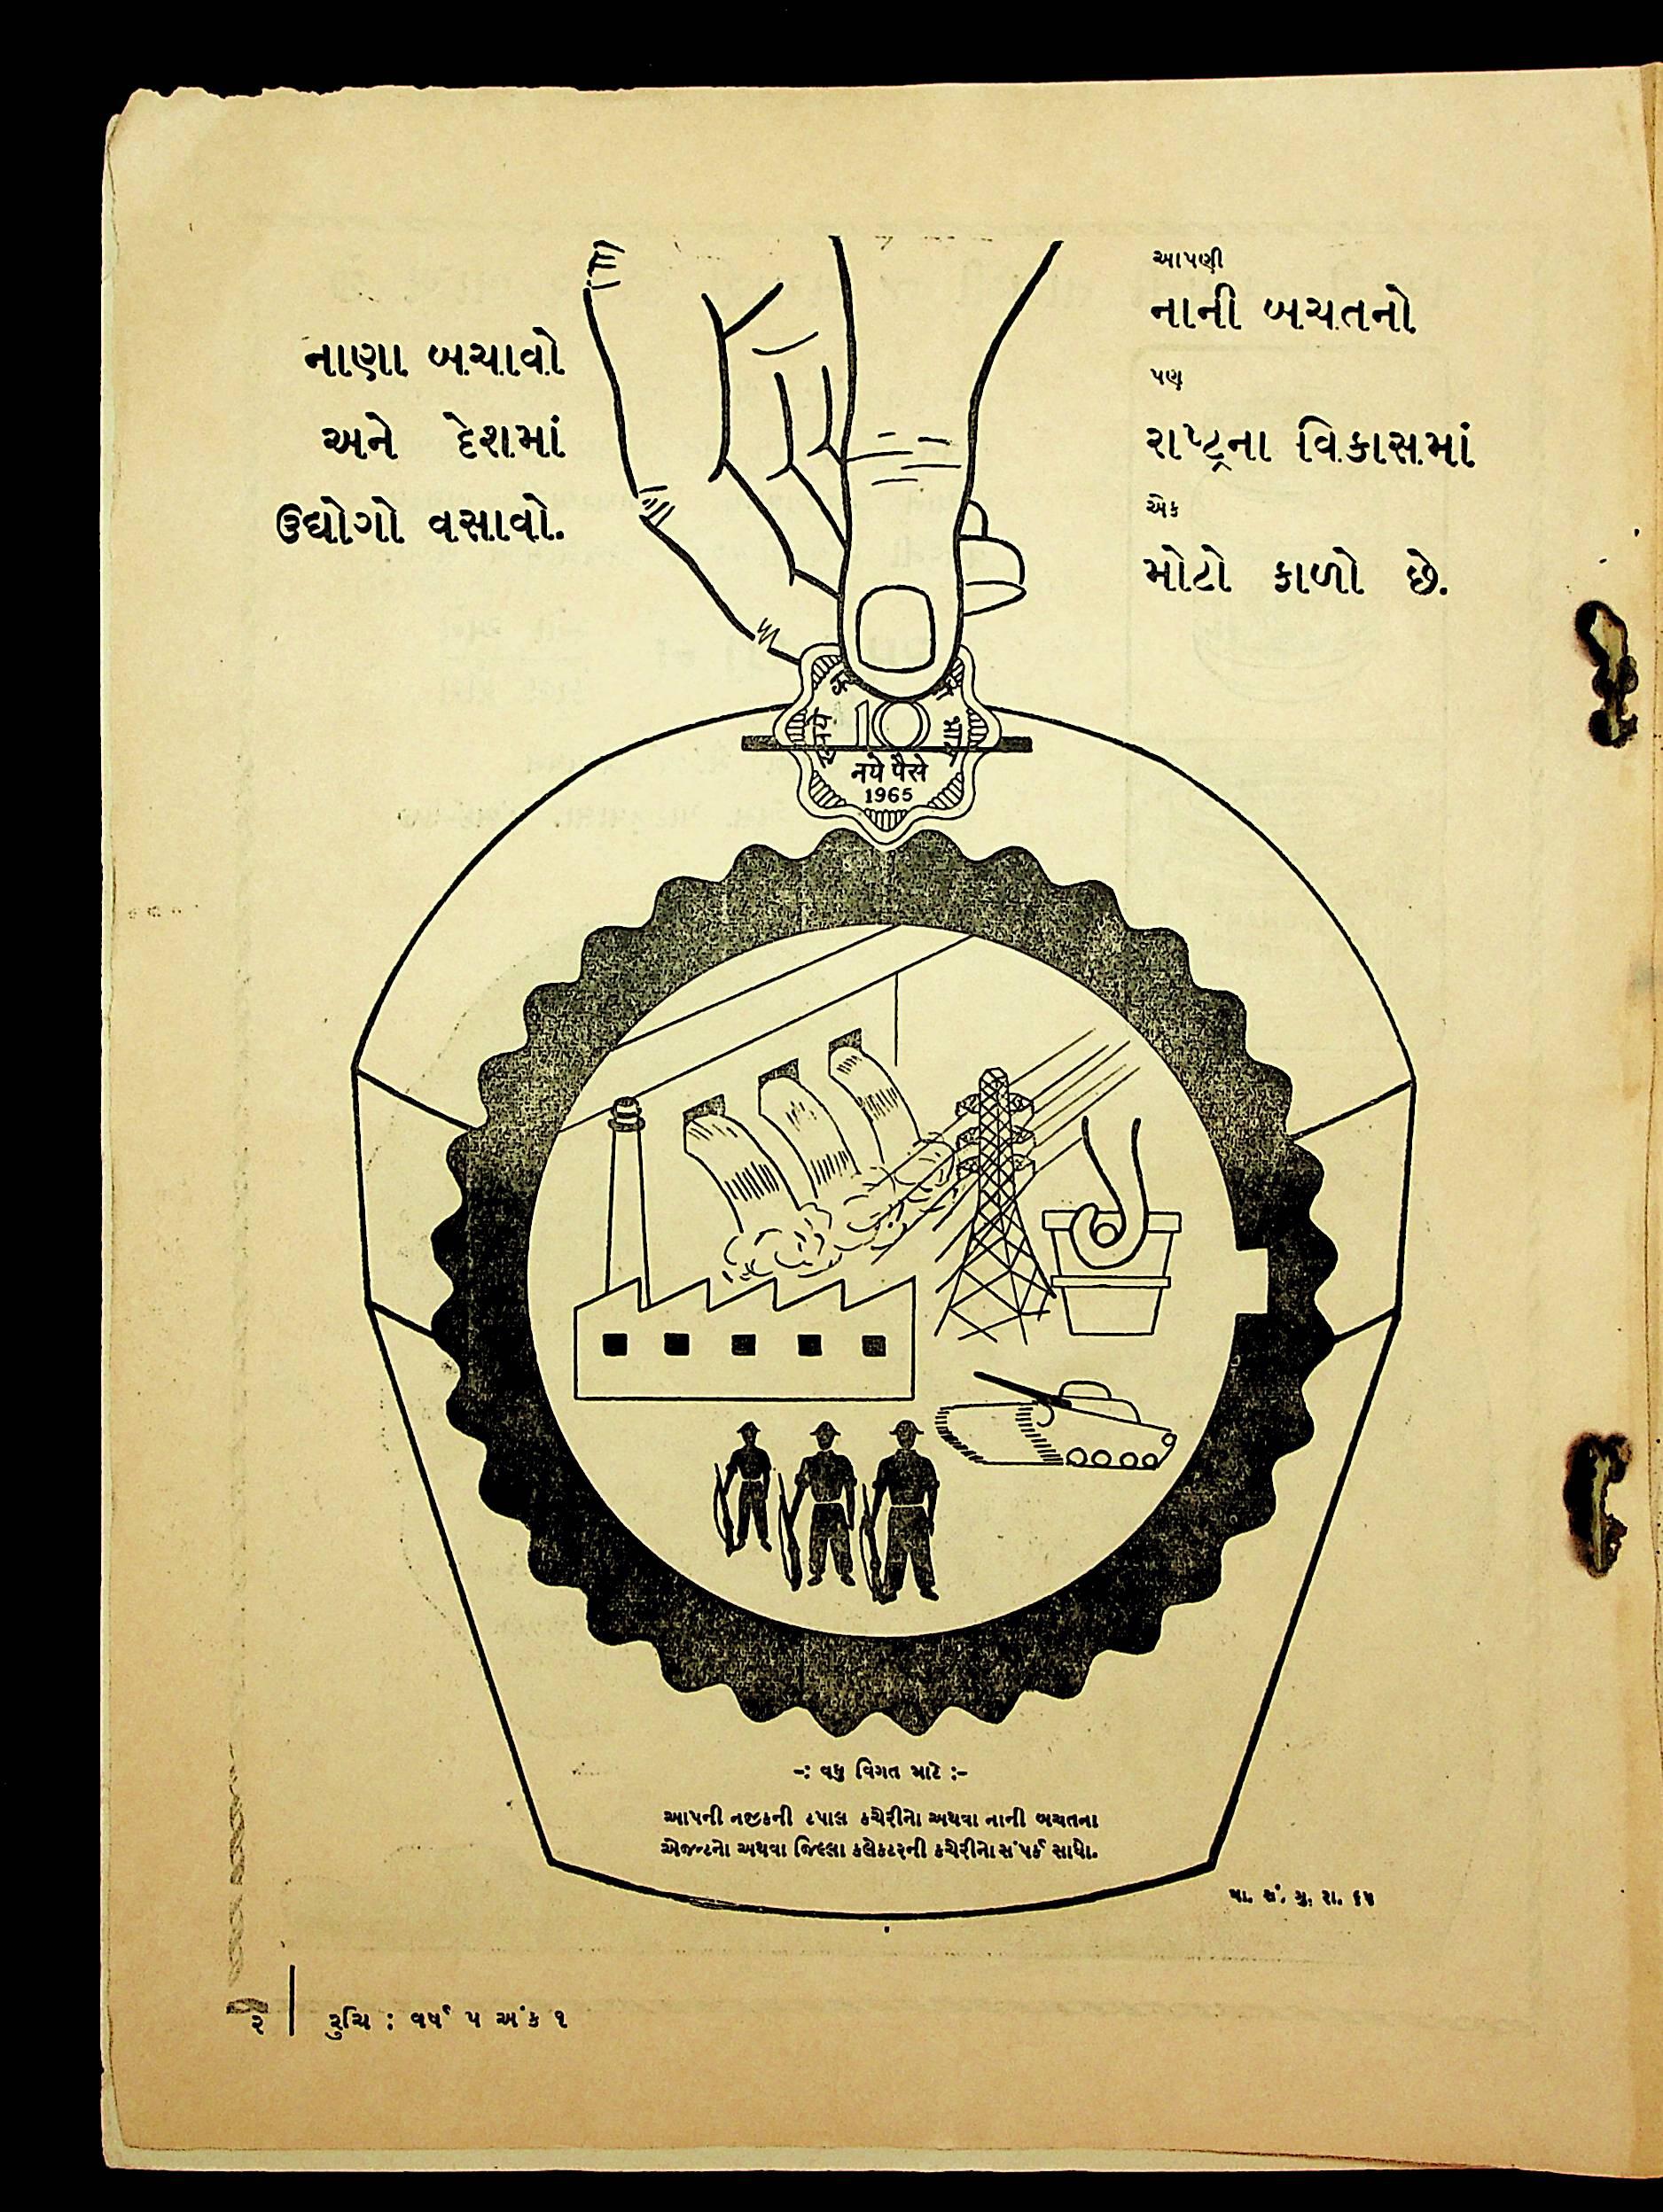 નાણા બચાવો
અને દેશમાં
ઉદ્યોગો વસાવો.
આપણી
નાની બચતનો
પણ
રાષ્ટ્રના વિકાસમાં
એક
મોટો ફાળો છે.
10
नये पैसे
1965
-: વધુ વિગત માટે :-
આપની નજીકની ટપાલ કચેરીનો અથવા નાની બચતના
એજન્ટનો અથવા જિલ્લા કલેકટરની કચેરીનો સંપર્ક સાધો.
મા. ખં. ગુ. રા. ૬૫
૨ | રુચિ : વર્ષ ૫ અંક ૧